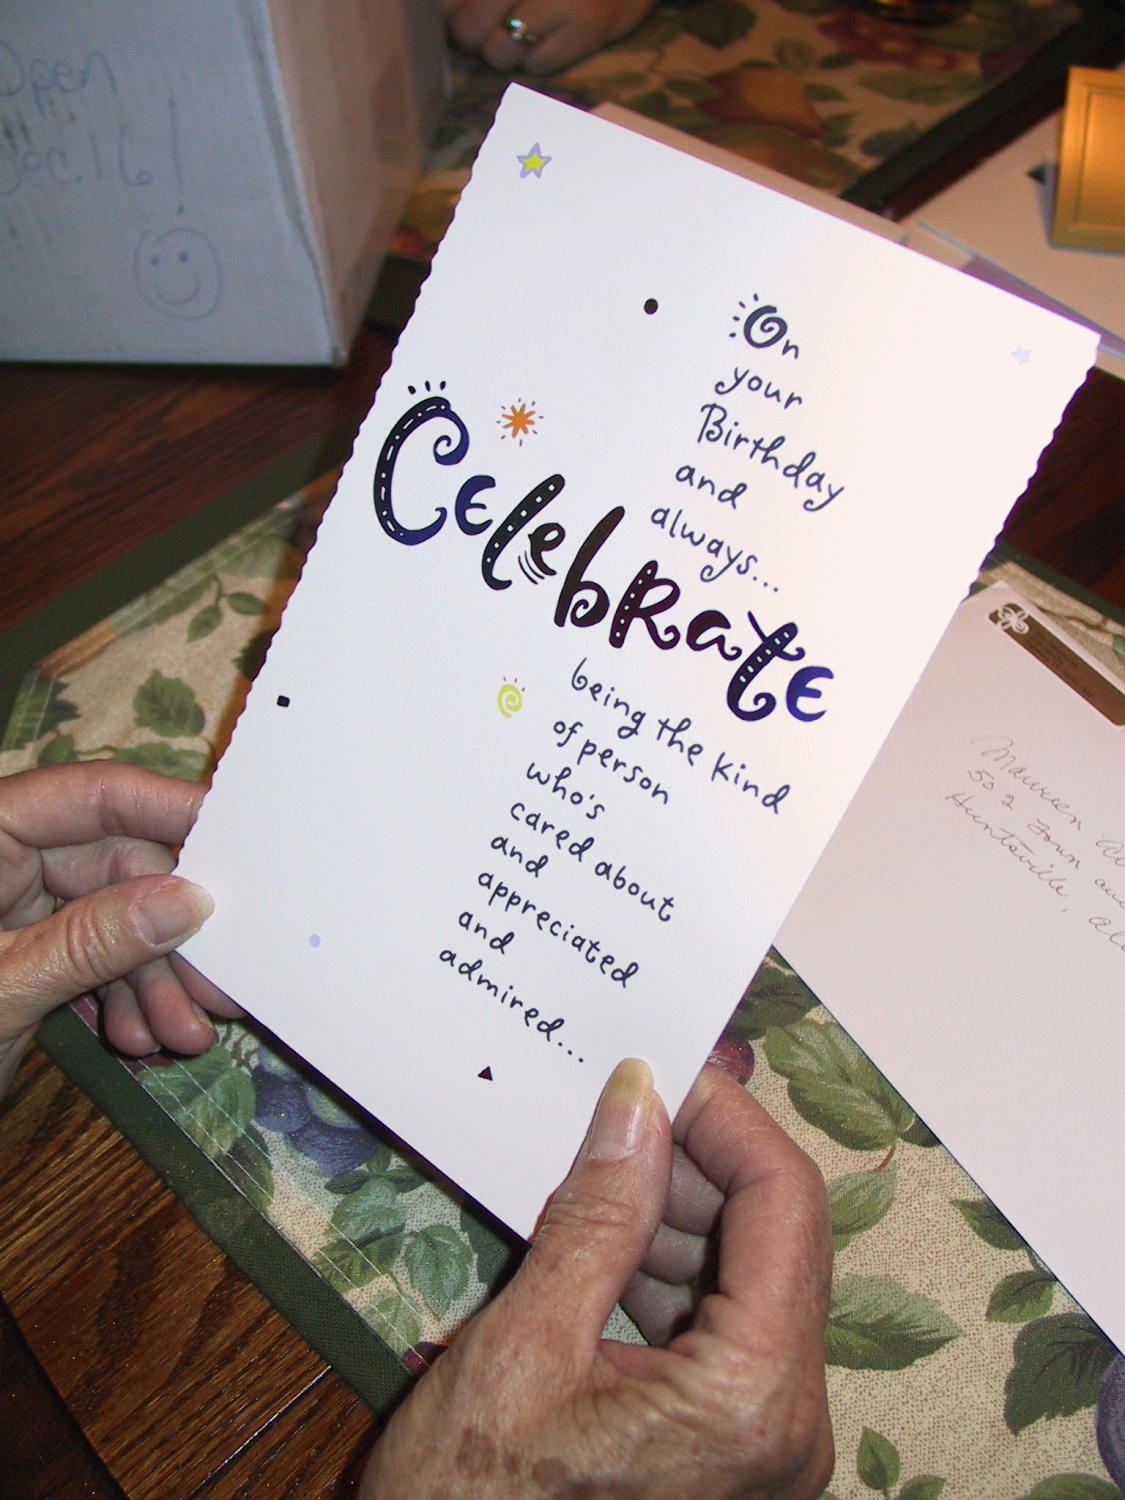 Open
Dec. 16!
On
your
Birthday
and
always...
CELEbRatE
being the kind
of person
who's
cared about
and
appreciated
and
admired...
Maureen
502 Town
Huntsville,